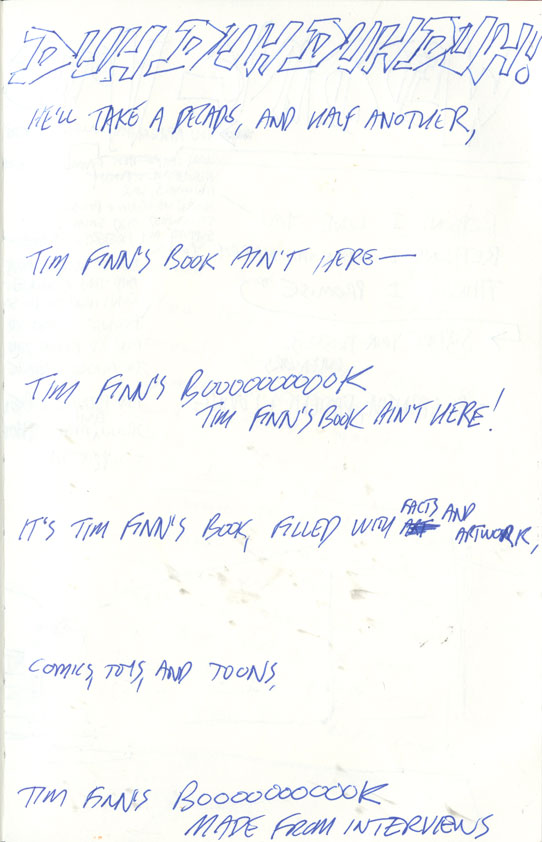 DUH DUH DUH DUH!
HE'LL TAKE A DECADE, AND HALF ANOTHER,
TIM FINN'S BOOK AIN'T HERE—
TIM FINN'S BOOOOOOOOOOK
TIM FINN'S BOOK AIN'T HERE!
IT'S TIM FINN'S BOOK, FILLED WITH FACTS AND ARTWORK,
COMICS, TOYS, AND TOONS,
TIM FINN'S BOOOOOOOOOOK
MADE FROM INTERVIEWS